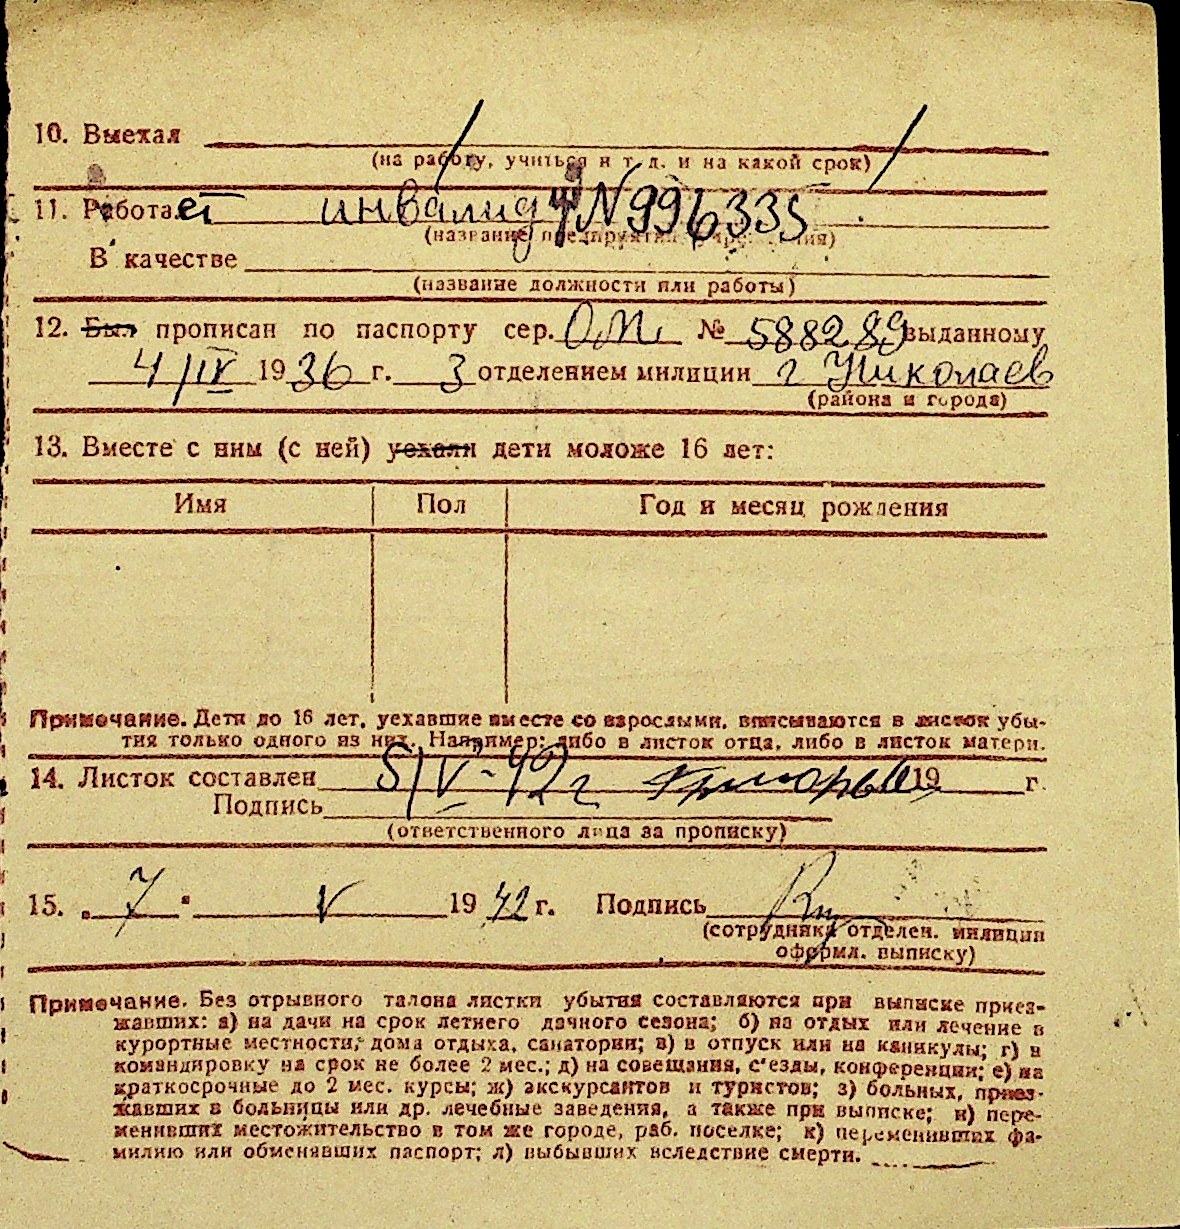 10. Выехал
(на работу, учиться и т. д. и на какой срок)
11. Работает инвалид N 996335
(название предприятия, учреждения)
В качестве
(название должности или работы)
12. Был прописан по паспорту сер. ОМ № 588289 выданному
4/IV 1936 г. 3 отделением милиции г Николаев
(района и города)
13. Вместе с ним (с ней) уехали дети моложе 16 лет:
Имя Пол Год и месяц рождения
Примечание. Дети до 16 лет, уехавшие вместе со взрослыми, вписываются в листок убы-
тия только одного из них. Например: либо в листок отца, либо в листок матери.
14. Листок составлен 5/V-42 г 19 г.
Подпись
(ответственного лица за прописку)
15. „ 7 " V 1942 г. Подпись
(сотрудника отделен. милиции
оформл. выписку)
Примечание. Без отрывного талона листки убытия составляются при выписке приез-
жавших: а) на дачи на срок летнего дачного сезона; б) на отдых или лечение в
курортные местности, дома отдыха, санатории; в) в отпуск или на каникулы; г) в
командировку на срок не более 2 мес.; д) на совещания, с'езды, конференции; е) на
краткосрочные до 2 мес. курсы; ж) экскурсантов и туристов; з) больных, приез-
жавших в больницы или др. лечебные заведения, а также при выписке; и) пере-
менивших местожительство в том же городе, раб. поселке; к) переменивших фа-
милию или обменявших паспорт; л) выбывших вследствие смерти.